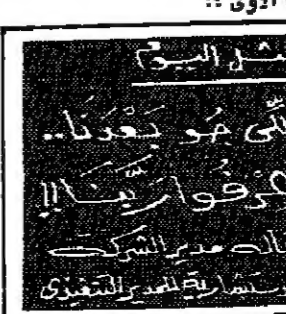 الأقوى !!
مثل اليوم
اللي جو بعدنا..
عرفوا ربنا !!
قاله مدير الشركة
ومستشاريه للمدير التنفيذي